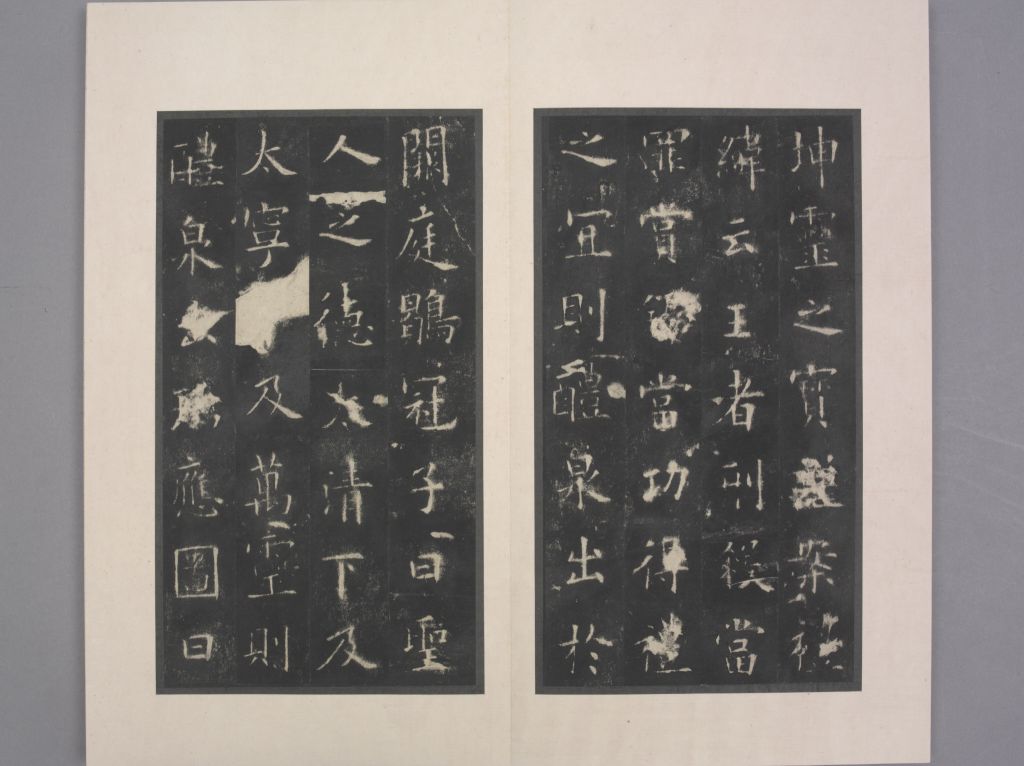 坤靈之寶案禮
緯云王者刑殺當
罪賞當功得禮
之宜則醴泉出於
闕庭鶡冠子曰聖
人之德太清下及
太寧及萬靈則
醴泉出應圖曰